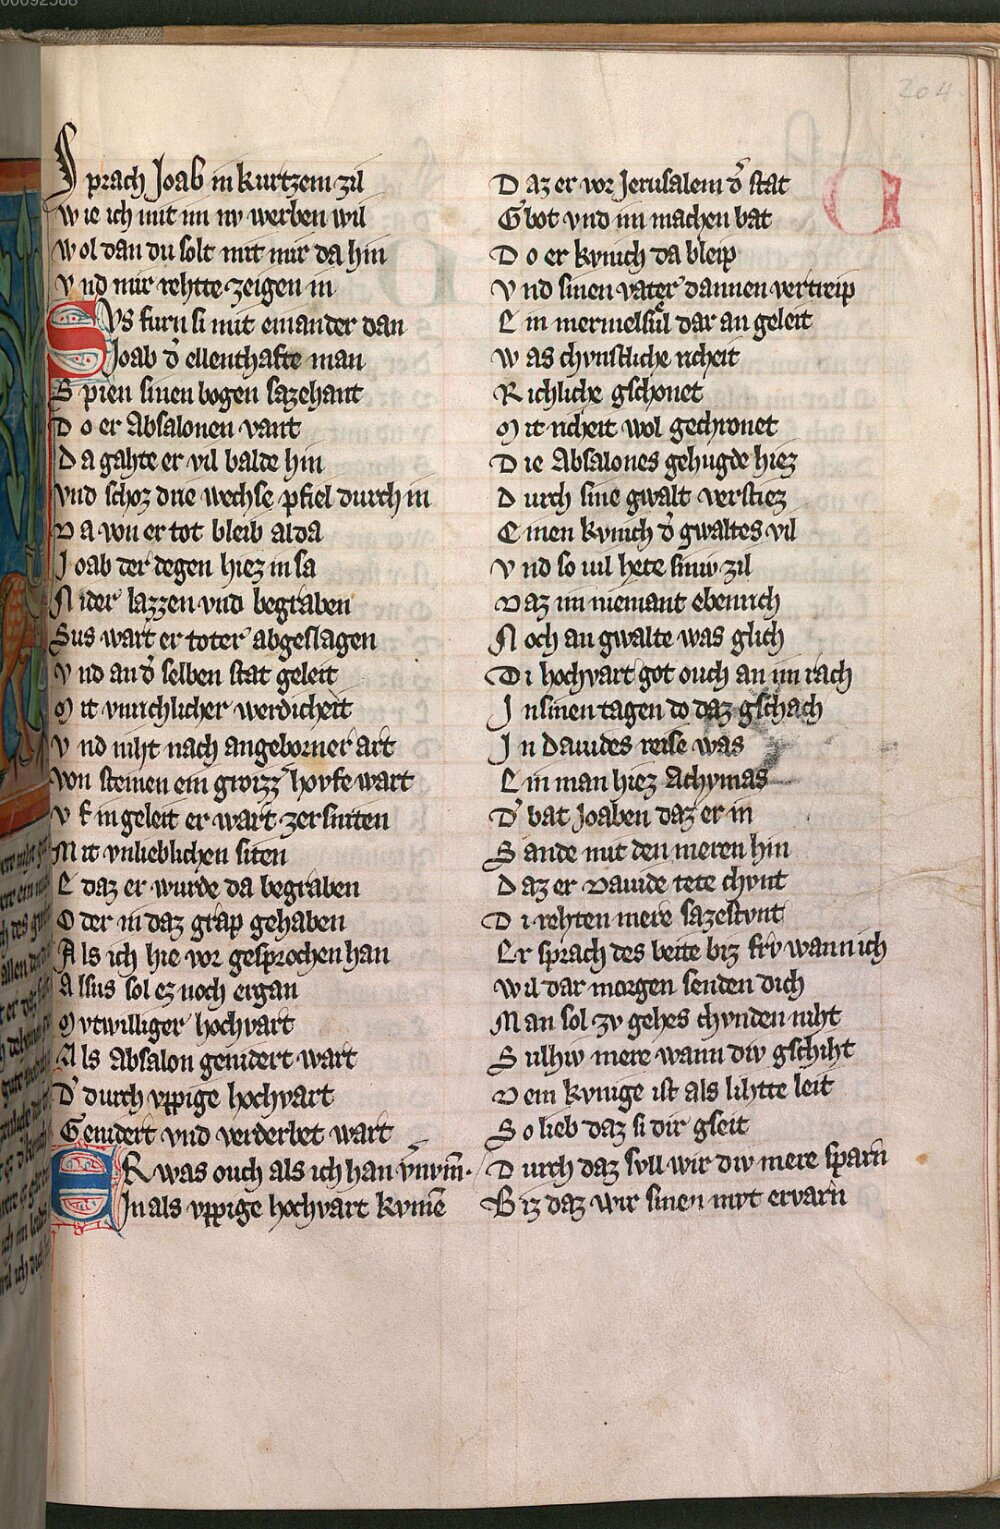 204
I prach Joab in kurtzem zil
Wie ich mit im nv werben wil
Wol dan du solt mit mir da hin
Vnd mir rehtte zeigen in
Svs furn si mit einander dan
Joab d̾ ellenthafte man
Spien sinen bogen sazehant
Do er Absalonen vant
Da gahte er vil balde hin
Vnd schoz drie wechse pfiel durch in
Da von er tot bleib alda
Joab der degen hiez in sa
Nider lazzen vnd begraben
Sus wart er toter abgeslagen
Vnd an d̾ selben stat geleit
Mit vnirchlicher werdicheit
Vnd niht nach angeborner art
Von steinen ein grozz̾ hovfe wart
Vf in geleit er wart zersniten
Mit vnlieblichen siten
E daz er wurde da begraben
Oder in daz grap gehaben
Als ich hie vor gesprochen han
Alsus sol ez noch ergan
Mvtwilliger hochvart
Als Absalon genidert wart
D̾ durch vppige hochvart
Genidert vnd verderbet wart
ER was ouch als ich han v̾num̄.
In als vppige hochvart kvmē
Daz er vor Jerusalem d̾ stat
Gbot vnd im machen bat
Do er kvnich da bleip
Vnd sinen vater dannen vertreip
Ein mermelsůl dar an geleit
Was chvnstliche richeit
Richliche gschonet
Mit richeit wol gechronet
Die Absalones gehugde hiez
Durch sine gwalt verstiez
Einen kvnich d̾ gwaltes vil
Vnd so vil hete siniv zil
Daz im niemant ebenrich
Noch an gwalte was glich
Di hochvart got ouch an im rach
In sinen tagen do daz gschach
In Dauides reise was
Ein man hiez Achymas
D̾ bat Joaben daz er in
Sande mit den meren hin
Daz er Dauide tete chvnt
Di rehten mere sazestvnt
Er sprach des beite biz frv wann ich
Wil dar morgen senden dich
Man sol zv gehes chvnden niht
Sulhiv mere wann div gschiht
Dem kvnige ist als lihtte leit
So lieb daz si dir gseit
Durch daz svll wir div mere sparn
Biz daz wir sinen mvt ervarn